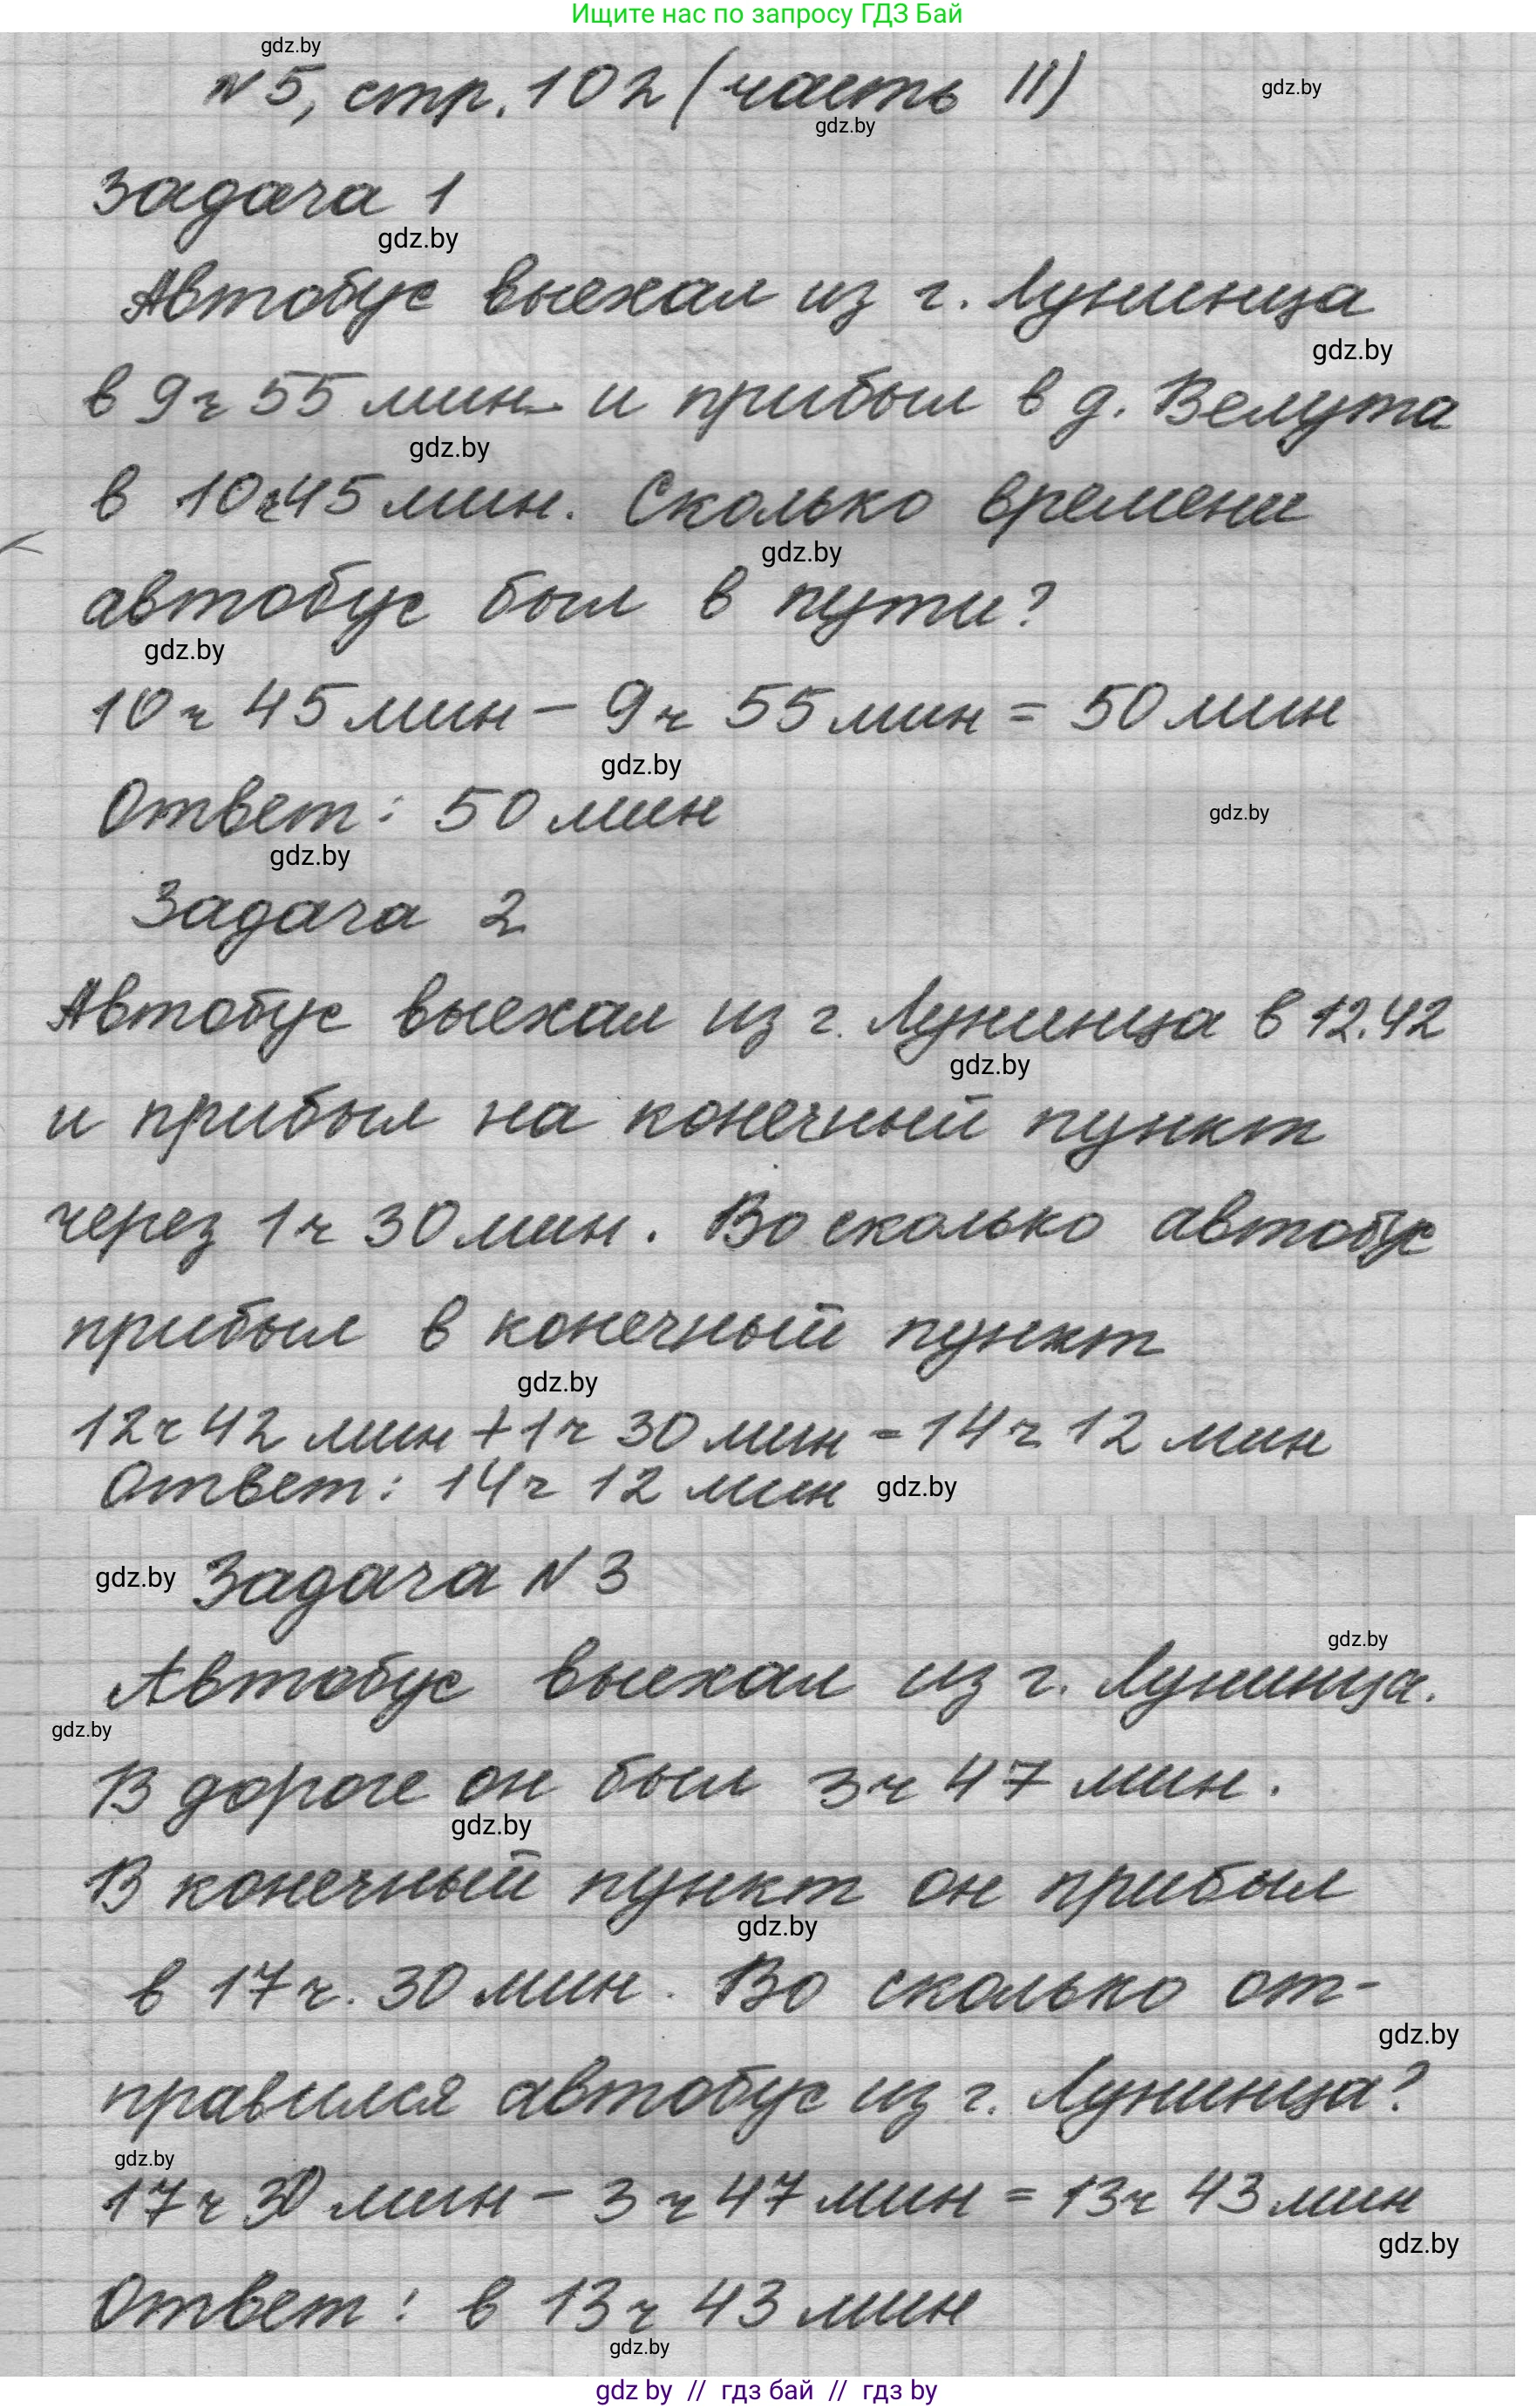 Ищите нас по запросу ГДЗ Бай
gdz.by
№5, стр. 102 (часть II)
gdz.by
gdz.by
Задача 1
gdz.by
Автобус выехал из г. Лунинца
gdz.by
в 9 ч 55 мин. и прибыл в д. Велута
gdz.by
в 10 ч 45 мин. Сколько времени
gdz.by
автобус был в пути?
gdz.by
10 ч 45 мин − 9 ч 55 мин = 50 мин
gdz.by
Ответ: 50 мин
gdz.by
gdz.by
Задача 2
Автобус выехал из г. Лунинца в 12.42
gdz.by
и прибыл на конечный пункт
через 1 ч 30 мин. Во сколько автобус
прибыл в конечный пункт
gdz.by
12 ч 42 мин + 1 ч 30 мин = 14 ч 12 мин
Ответ: 14 ч 12 мин
gdz.by
gdz.by
Задача №3
gdz.by
Автобус выехал из г. Лунинца.
gdz.by
В дороге он был 3 ч 47 мин.
gdz.by
В конечный пункт он прибыл
gdz.by
в 17 ч. 30 мин. Во сколько от-
gdz.by
правился автобус из г. Лунинца?
gdz.by
17 ч 30 мин − 3 ч 47 мин = 13 ч 43 мин
gdz.by
Ответ: в 13 ч 43 мин
gdz.by
gdz by // гдз бай // гдз by